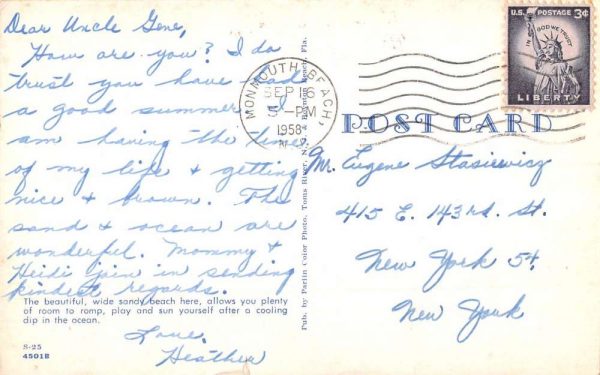 Dear Uncle Gene,
How are you? I do
trust you have had
a good summer. I
am having the time
of my life & getting
nice & brown. The
sand & ocean are
wonderful. Mommy &
Heidi join in sending
kindest regards.
The beautiful, wide sandy beach here, allows you plenty
of room to romp, play and sun yourself after a cooling
dip in the ocean.
Love,
Heather
S-25
4501B
Pub. by Parlin Color Photo. Toms River, N. Beach, Fla.
MONMOUTH BEACH,
SEP 16
5-PM
1958
N.J.
U.S. POSTAGE 3¢
IN GOD WE TRUST
LIBERTY
POST CARD
Mr. Eugene Stasiewicz
415 E. 143rd. St.
New York 54,
New York